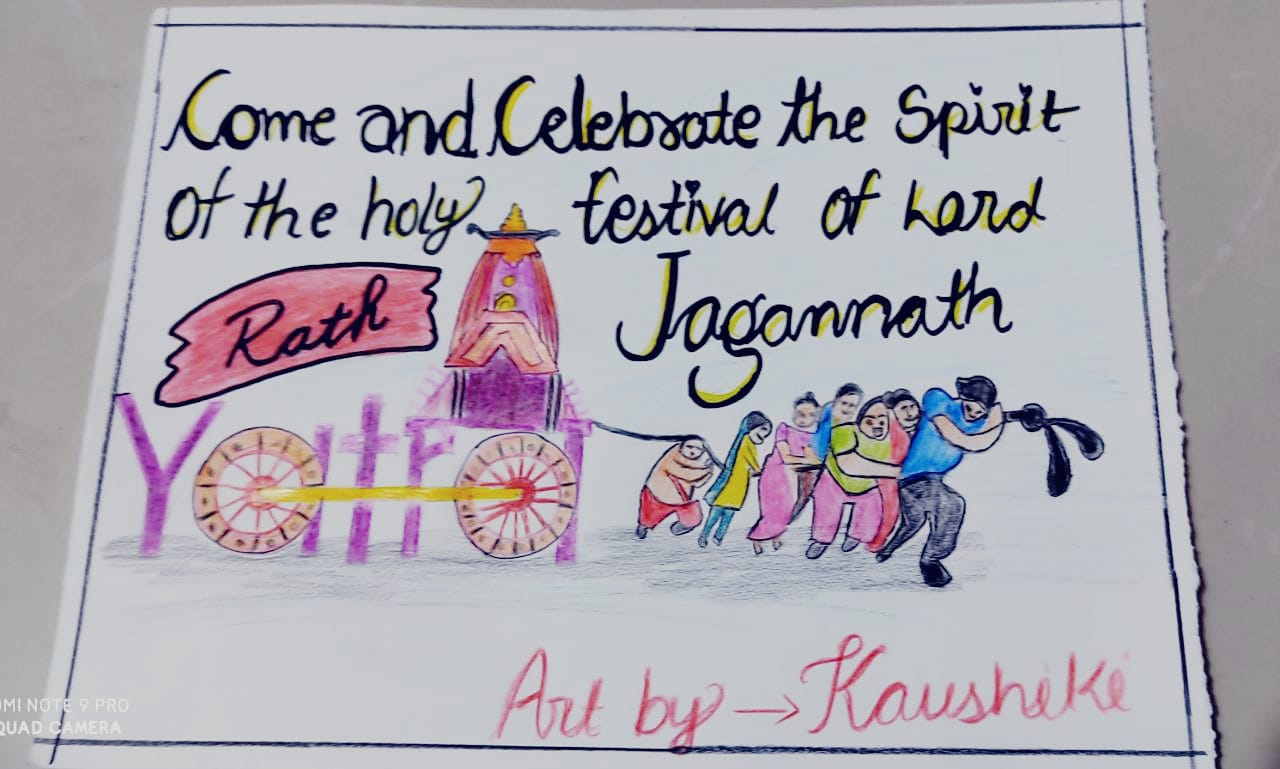 Come and Celebrate the Spirit
of the holy festival of Lord
Rath Jagannath
Yatra
Art by → Kausheke
OMI NOTE 9 PRO
QUAD CAMERA